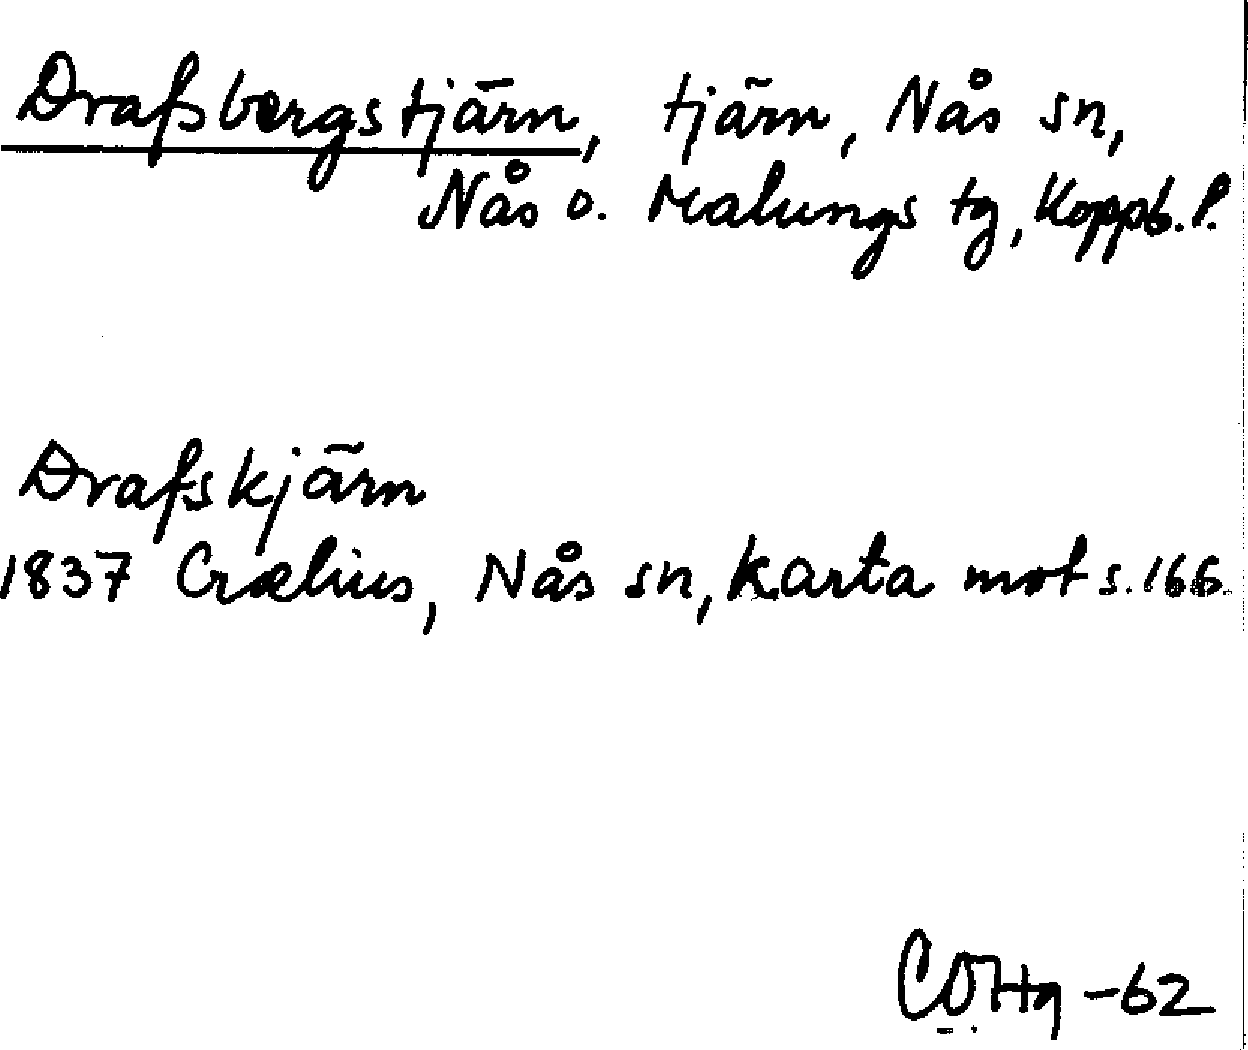 Drafsbergstjärn, tjärn, Nås sn,
Nås o. Malungs tg, Koppb. l.
Drafskjärn
1837 Crælius, Nås sn, karta mot s. 166.
-62